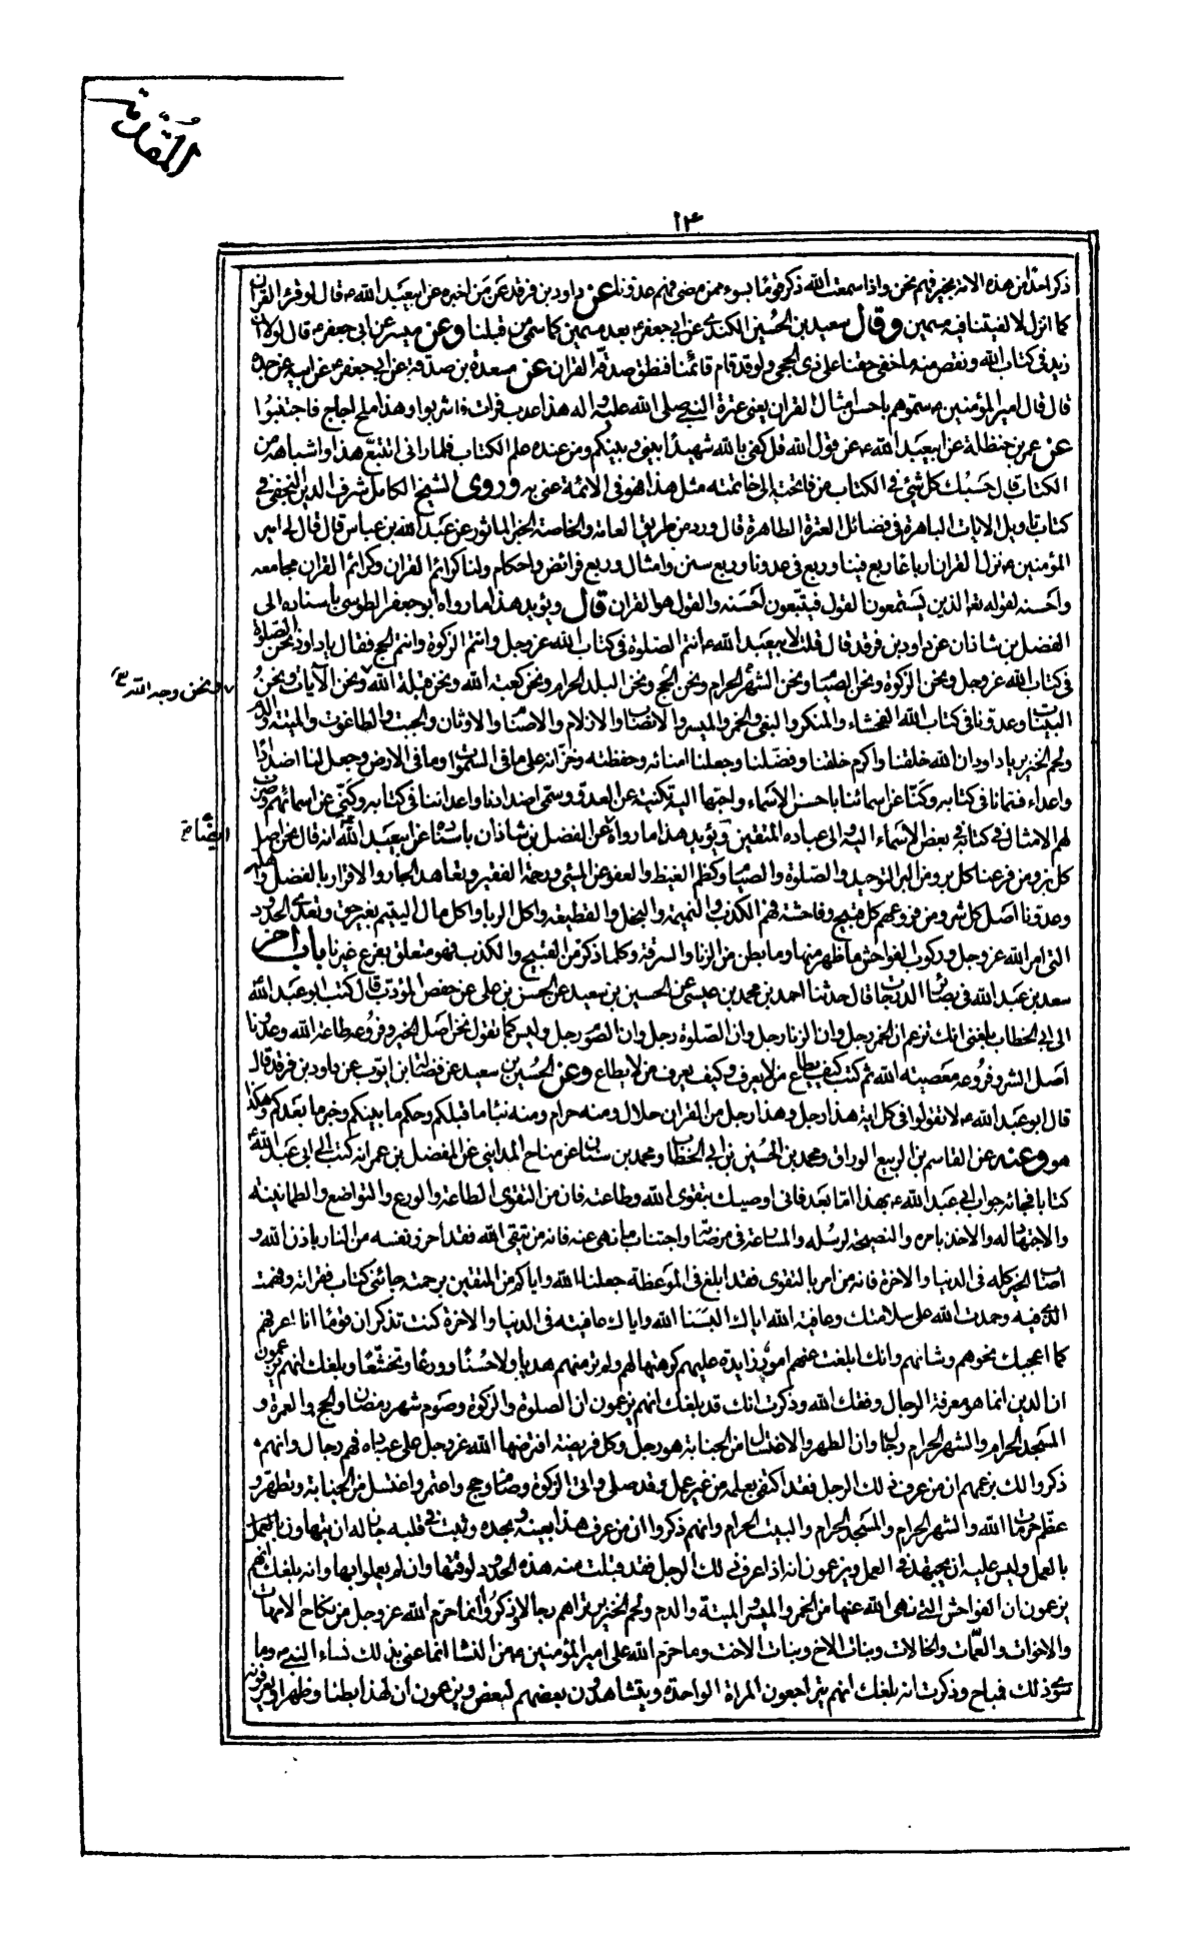 المقدمة
١٤
ذكر احدا من هذه الامة بخير فهم نحن واذا سمعت الله ذكر قوما بسوء ممن مضى فهم عدونا عن داود بن فرقد عن من اخبره عن ابيعبد الله ء قال لو قرء القران
كما انزل لالفيتنا فيه مسمين وقال سعيد بن الحسين الكندى عن ابي جعفر ء بعد مسمين كما سمى من قبلنا وعن ميسر عن ابى جعفر ء قال لولا ان
زيد فى كتاب الله ونقص منه ما خفى حقنا على ذى الحجى ولو قد قام قائمنا فنطق صدقه القران عن مسعدة بن صدقة عن ابي جعفر ء عن ابيه عن جده
قال قال امير المؤمنين ء سموهم باحسن امثال القران يعنى عترة النبي صلى الله عليه واله هذا عذب فرات فاشربوا وهذا ملح اجاج فاجتنبوا
عن عمر بن حنظلة عن ابيعبد الله ء عن قول الله قل كفى بالله شهيدا بينى وبينكم ومن عنده علم الكتاب فلما رانى اتتبع هذا واشباهه من
الكتاب قال حسبك كل شئ فى الكتاب من فاتحته الى خاتمته مثل هذا فهو فى الائمة عنى به وروى الشيخ الكامل شرف الدين النجفى فى
كتاب تاويل الايات الباهرة فى فضائل العترة الطاهرة قال ورد من طريق العامة والخاصة الخبر الماثور عن عبد الله بن عباس قال قال لى امير
المؤمنين ء نزل القران ارباعا ربع فينا وربع فى عدونا وربع سنن وامثال وربع فرائض واحكام ولنا كرائم القران وكرائم القران محامعه
واحسنه لقوله تعالى الذين يستمعون القول فيتبعون احسنه والقول هو القران قال ويؤيد هذا ما رواه ابو جعفر الطوسى باسناده الى
الفضل بن شاذان عن داود بن فرقد قال قلت لابيعبد الله ء انتم الصلوة فى كتاب الله عز وجل وانتم الزكوة وانتم الحج فقال يا داود نحن الصلوة
فى كتاب الله عز وجل ونحن الزكوة ونحن الصيام ونحن الشهر الحرام ونحن الحج ونحن البلد الحرام ونحن كعبة الله ونحن قبلة الله ونحن الآيات ونحن
ونحن وجه الله
البينات وعدونا فى كتاب الله الفحشاء والمنكر والبغى والخمر والميسر والانصاب والازلام والاصنام والاوثان والجبت والطاغوت والميتة والدم
ولحم الخنزير يا داود ان الله خلقنا واكرم خلقنا وفضلنا وجعلنا امنائه وحفظته وخزانه على ما فى السموات وما فى الارض وجعل لنا اضدادا
واعداء فسمانا فى كتابه وكنا عن اسمائنا باحسن الاسماء واحبها اليه تكنية عن العدو وسمى اضدادنا واعدائنا فى كتابه وكنى عن اسمائهم وضرب
لهم الامثال فى كتابه فى بعض الاسماء اليه والى عباده المتقين ويؤيد هذا ما رواه عن الفضل بن شاذان باسناده عن ابيعبد الله انه قال نحن اصل
ايضا
كل بر ومن فرعنا كل بر ومن البر التوحيد والصلوة والصيام وكظم الغيظ والعفو عن المسئ ورحمة الفقير وتعاهد الجار والاقرار بالفضل لاهله
وعدونا اصل كل شر ومن فروعهم كل قبيح وفاحشة فهم الكذب والنميمة والبخل والقطيعة واكل الربوا واكل مال اليتيم بغير حق وتعدى الحدود
التى امر الله عز وجل وركوب الفواحش ما ظهر منها وما بطن من الزنا والسرقة وكلما ذكر من القبيح والكذب فهو متعلق بفرع غيرنا باب اخر
سعد بن عبد الله فى بصائر الدرجات قال حدثنا احمد بن محمد بن عيسى عن الحسين بن سعيد عن الحسن بن على عن حفص المؤدب قال كتب ابو عبد الله
الى ابي الخطاب بلغنى انك تزعم ان الخمر رجل وان الزنا رجل وان الصلوة رجل وان الصوم رجل وليس كما تقول نحن اصل الخير وفروعه طاعة الله وعدونا
اصل الشر وفروعه معصية الله ثم كتب كيف يطاع من لا يعرف وكيف يعرف من لا يطاع وعن الحسين بن سعيد عن فضالة بن ايوب عن داود بن فرقد قال
قال ابو عبد الله ء لا تقولوا فى كل اية هذا رجل وهذا رجل من القران حلال ومنه حرام ومنه نبأ ما قبلكم وحكم ما بينكم وخبر ما بعدكم وهكذا
هو وعنه عن القاسم بن الربيع الوراق ومحمد بن الحسين بن ابي الخطاب ومحمد بن سنان عن مياح المداينى عن المفضل بن عمر انه كتب الى ابى عبد الله
كتابا فجائه جواب ابي عبد الله ء بهذا اما بعد فانى اوصيك بتقوى الله وطاعته فان من التقوى الطاعة والورع والتواضع والطمانينة
والاجتهاد له والاخذ بامره والنصيحة لرسله والمسارعة فى مرضاته واجتناب ما نهى عنه فانه من يتقى الله فقد احرز نفسه من النار باذن الله و
اصاب الخير كله فى الدنيا والاخرة فانه من امر بالتقوى فقد ابلغ فى الموعظة جعلنا الله واياكم من المتقين برحمته جائنى كتابك فقرأته وفهمت
الذى فيه وحمدت الله على سلامتك وعافية الله اياك البسنا الله واياك عافيته فى الدنيا والاخرة كنت تذكر ان قوما انا اعرفهم
كما اعجبك نحوهم وشانهم وانك ابلغت عنهم امورا زايدة عليهم كرهتها لهم ولم تر منهم هديا ولا حسنا وورعا وتخشعا وبلغك انهم يزعمون
ان الدين انما هو معرفة الرجال وفقك الله وذكرت انك قد بلغك انهم يزعمون ان الصلوة والزكوة وصوم شهر رمضان والحج والعمرة و
المسجد الحرام والشهر الحرام رجال وان الطهر والاغتسال من الجنابة هو رجل وكل فريضة افترضها الله عز وجل على عباده فهم رجال وانهم
ذكروا لك بزعمهم ان من عرف ذلك الرجل فقد اكتفى بعلمه من غير عمل وقد صلى واتى الزكوة وصام وحج واعتمر واغتسل من الجنابة وتطهر و
عظم حرمات الله والشهر الحرام والمسجد الحرام والبيت الحرام وانهم ذكروا ان من عرف هذا بعينه وبحده وثبت فى قلبه جاز له ان يتهاون
بالعمل وليس عليه ان يجتهد فى العمل ويزعمون انه اذا عرف ذلك الرجل فقد قبلت منه هذه الحدود لوقتها وان لم يعملوا بها وانه بلغك انهم
يزعمون ان الفواحش التى نهى الله عنها من الخمر والميسر والميتة والدم ولحم الخنزير هم رجال وذكروا انما حرم الله عز وجل من نكاح الامهات
والاخوات والعمات والخالات وبنات الاخ وبنات الاخت وما حرم الله على امير المؤمنين ء من النساء انما عنى بذلك نساء النبى ء وما
سوى ذلك فباح وذكرت انه بلغك انهم يتراجعون المراة الواحدة ويتشاهدون بعضهم لبعض ويزعمون ان لهذا بطنا وظهرا يعرفونه